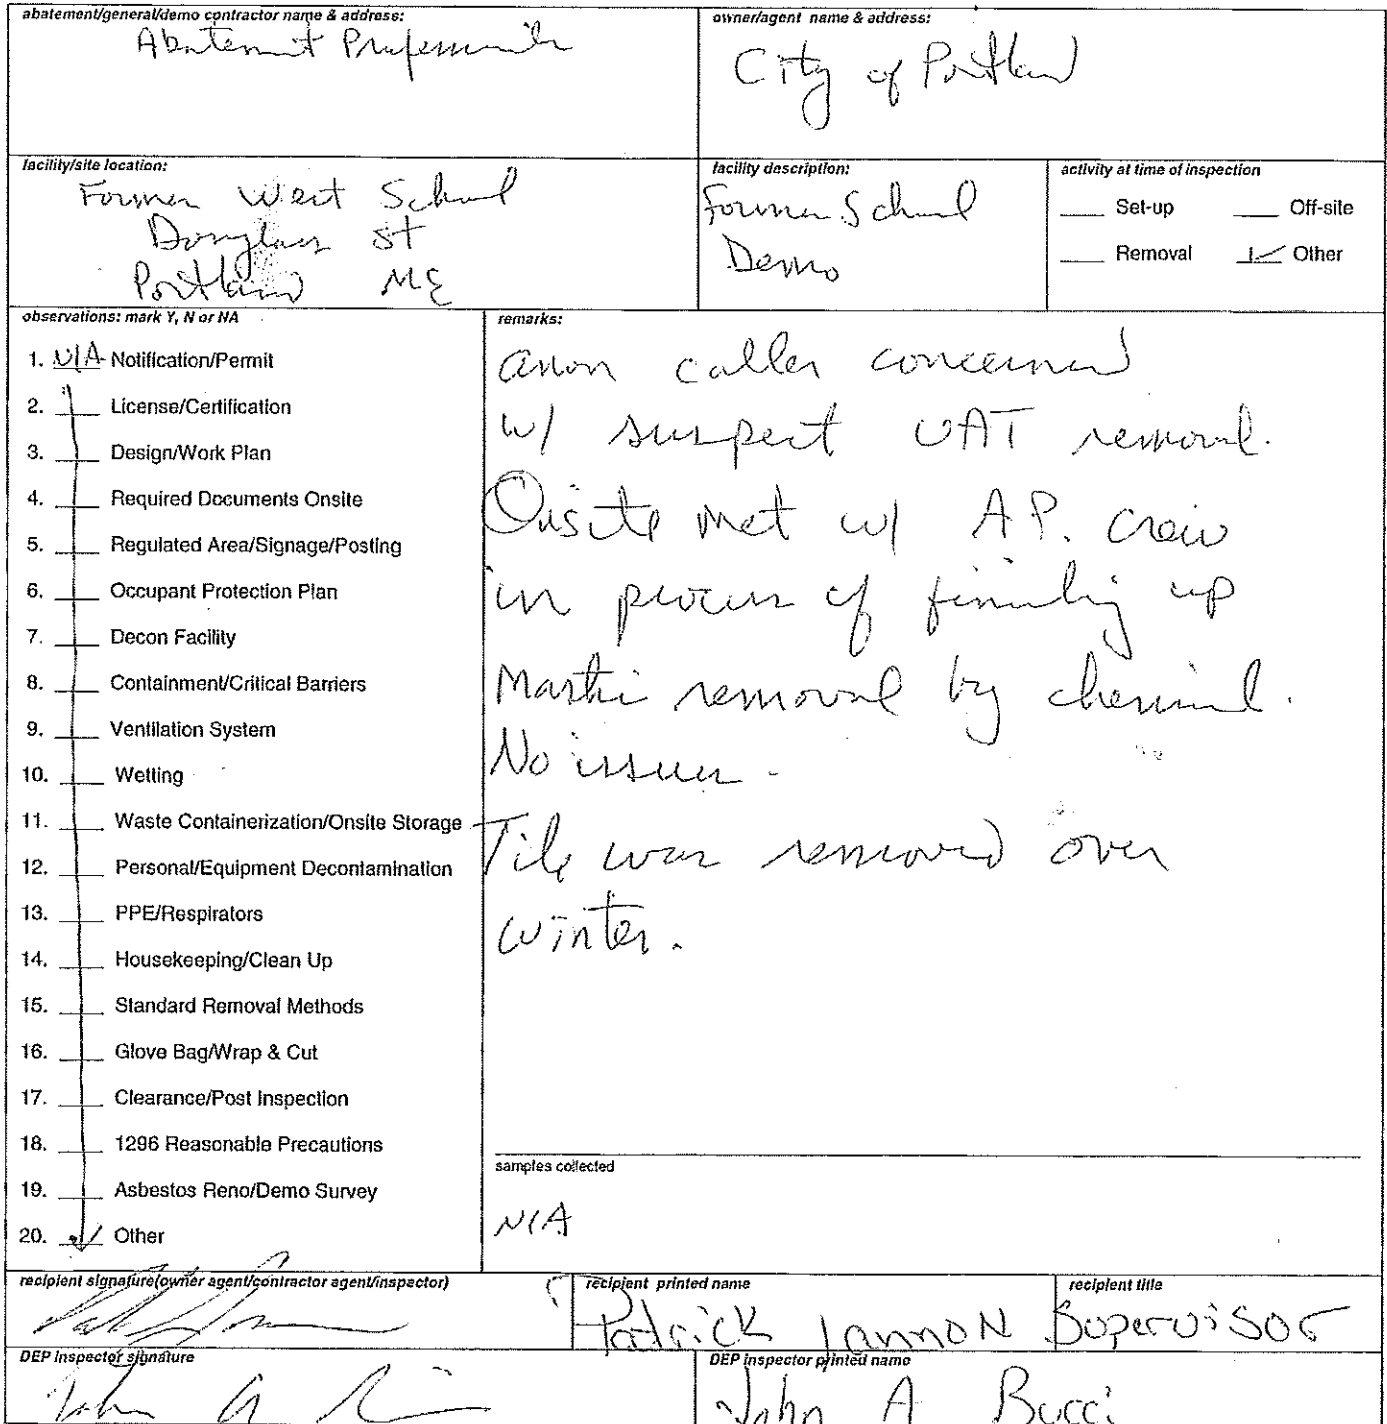 abatement/general/demo contractor name & address:
Abatement Professionals
owner/agent name & address:
City of Portland
facility/site location:
Former West School
Douglass St
Portland ME
facility description:
Former School
Demo
activity at time of inspection
Set-up
Off-site
Removal
Other
observations: mark Y, N or NA
1. N/A Notification/Permit
2. License/Certification
3. Design/Work Plan
4. Required Documents Onsite
5. Regulated Area/Signage/Posting
6. Occupant Protection Plan
7. Decon Facility
8. Containment/Critical Barriers
9. Ventilation System
10. Wetting
11. Waste Containerization/Onsite Storage
12. Personal/Equipment Decontamination
13. PPE/Respirators
14. Housekeeping/Clean Up
15. Standard Removal Methods
16. Glove Bag/Wrap & Cut
17. Clearance/Post Inspection
18. 1296 Reasonable Precautions
19. Asbestos Reno/Demo Survey
20. Other
remarks:
anon caller concerned
w/ suspect VAT removal.
Onsite met w/ A.P. crew
in process of finishing up
Mastic removal by chemical.
No issues.
Tile was removed over
winter.
samples collected
N/A
recipient signature(owner agent/contractor agent/inspector)
recipient printed name
Patrick Iannon
recipient title
Supervisor
DEP inspector signature
John A
DEP inspector printed name
John A Bucci